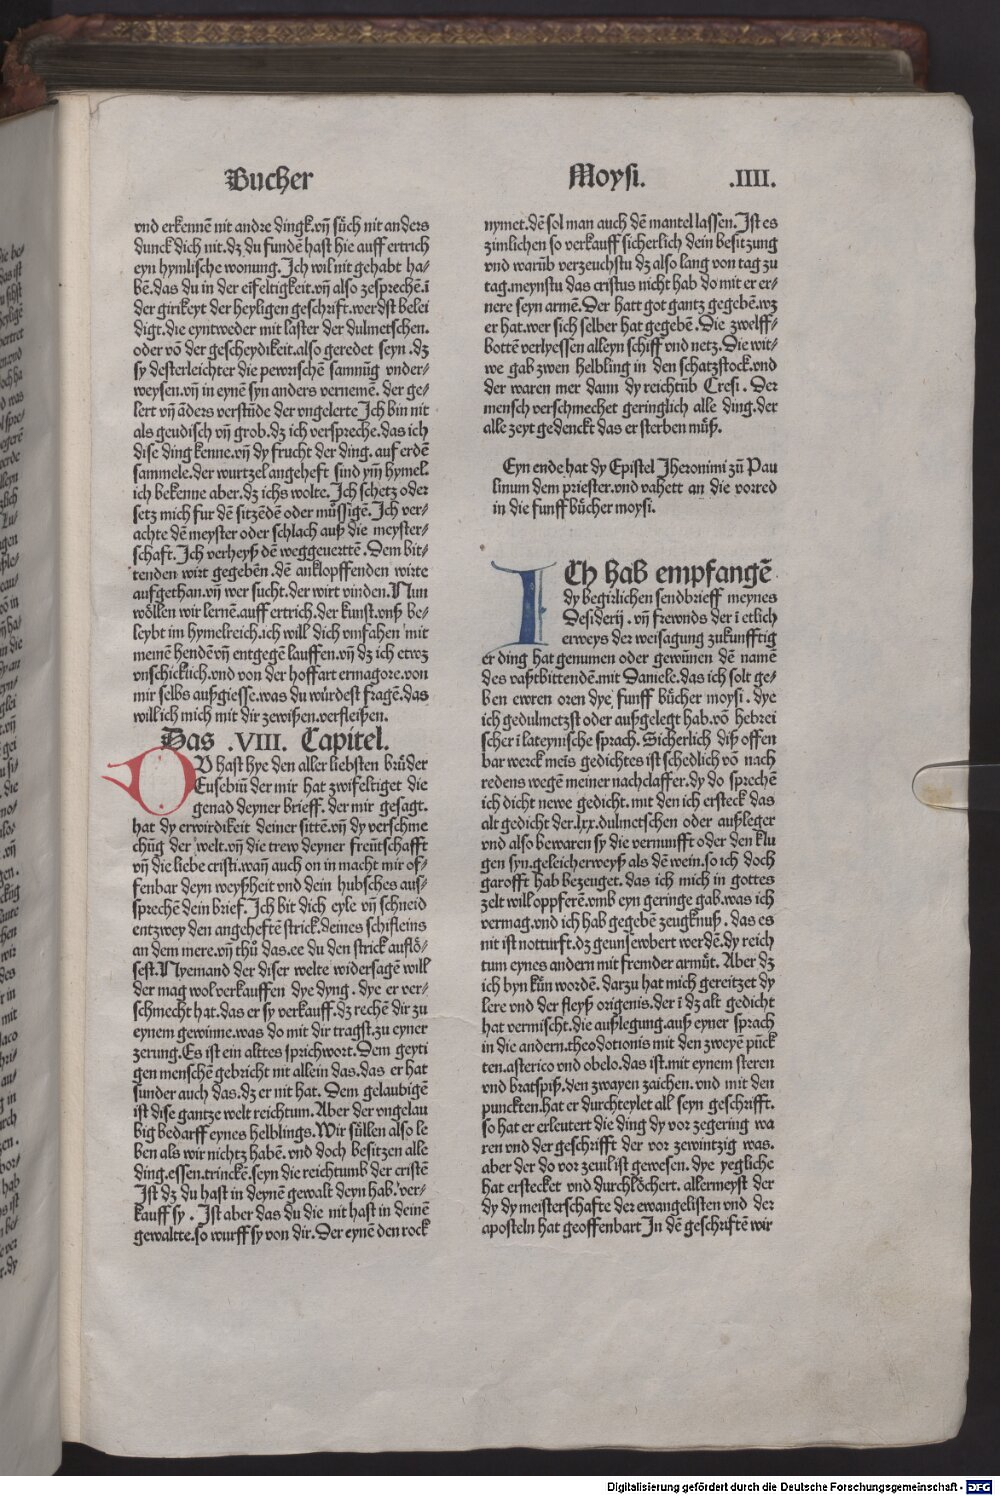 Bucher
Moysi. .IIII.
vnd erkennē nit andre dingk.vn̄ sůch nit anders
dunck dich nit.dz du fundē hast hie auff ertrich
eyn hymlische wonung.Ich wil nit gehabt ha⸗
bē.das du in der eifeltigkeit.vn̄ also zesprechē.ī
der girikeyt der heyligen geschrift.werdst belei
digt.die eyntweder mit laster der dulmetschen.
oder vō der gescheydikeit.also geredet seyn .dz
sy desterleichter die pewrischē samnūg vnder⸗
weysen.vn̄ in eynē syn anders vernemē. der ge⸗
lert vn̄ āders verstūde der vngelerte Ich bin nit
als geudisch vn̄ grob.dz ich verspreche.das ich
dise ding kenne.vn̄ dy frucht der ding. auf erdē
sammele.der wurtzel angeheft sind ym̄ hymel.
ich bekenne aber.dz ichs wolte. Ich schetz oder
setz mich fur dē sitzēdē oder můssigē. Ich ver⸗
achte dē meyster oder schlach auß die meyster⸗
schaft.Ich verheyß dē weggeuerttē. Dem bit⸗
tenden wirt gegebēn .dē anklopffenden wirte
aufgethan.vn̄ wer sucht.der wirt vinden.Nun
wöllen wir lernē.auff ertrich.der kunst.vnß be⸗
leybt im hymelreich.ich will dich vmfahen mit
meinē hendē vn̄ entgegē lauffen.vn̄ dz ich etwz
vnschicklich.vnd von der hoffart ermagore.von
mir selbs außgiesse.was du würdest fragē.das
will ich mich mit dir zewißen.verfleißen.
Das .VIII. Capitel.
DV hast hye den aller liebsten brůder
Eusebiū der mir hat zwifeltiget die
genad deyner brieff. der mir gesagt.
hat dy erwirdikeit deiner sittē.vn̄ dy verschme
chūg der welt.vn̄ die trew deyner freūtschafft
vn̄ die liebe cristi.wan̄ auch on in macht mir of⸗
fenbar deyn weyßheit vnd dein hubsches aus⸗
sprechē dein brief. Ich bit dich eyle vn̄ schneid
entzwey den angeheftē strick.deines schifleins
an dem mere.vn̄ thů das.ee du den strick auflö⸗
sest.Nyemand der diser welte widersagē will
der mag wol verkauffen dye dyng . dye er ver⸗
schmecht hat.das er sy verkauff.dz rechē dir zu
eynem gewinne.was do mit dir tragst.zu eyner
zerung.Es ist ein alttes sprichwort.Dem geyti
gen menschē gebricht nit allein das.das er hat
sunder auch das.dz er nit hat. Dem gelaubigē
ist dise gantze welt reichtum.Aber der vngelau
big bedarff eynes helblings.Wir süllen also le
ben als wir nichtz habē.vnd doch besitzen alle
ding.essen.trinckē.seyn die reichtumb der cristē
Ist dz du hast in deynē gewalt deyn hab. ver⸗
kauff sy . Ist aber das du die nit hast in deinē
gewaltte.so wurff sy von dir.Der eynē den rock
nymet.dē sol man auch dē mantel lassen.Ist es
zimlichen so verkauff sicherlich dein besitzung
vnd warūb verzeuchstu dz also lang von tag zu
tag.meynstu das cristus nicht hab do mit er er⸗
nere seyn armē.Der hatt got gantz gegebē.wz
er hat.wer sich selber hat gegebē .Die zwelff⸗
bottē verlyessen alleyn schiff vnd netz.Die wit⸗
we gab zwen helbling in den schatzstock.vnd
der waren mer dann dy reichtūb Cresi . Der
mensch verschmechet geringlich alle ding.der
alle zeyt gedenckt das er sterben můß.
Eyn ende hat dy Epistel Jheronimi zů Pau
linum dem priester.vnd vahett an die vorred
in die funff bücher moysi.
ICh hab empfangē
dy begirlichen sendbrieff meynes
Desiderij . vn̄ frewnds der ī etlich
erweys der weisagung zukunfftig
er ding hat genumen oder gewūnen dē namē
des vaßtbittendē.mit Daniele.das ich solt ge⸗
ben ewren oren dye funff bücher moysi . dye
ich gedulmetzst oder außgelegt hab.vō hebrei
scher ī lateynische sprach. Sicherlich diß offen
bar werck meīs gedichtes ist schedlich vō nach
redens wegē meiner nachclaffer.dy do sprechē
ich dicht newe gedicht.mit den ich ersteck das
alt gedicht der.lxx.dulmetschen oder außleger
vnd also bewaren sy die vernunfft oder den klu
gen syn.geleicherweyß als dē wein.so ich doch
garofft hab bezeuget.das ich mich in gottes
zelt will oppferē.vmb eyn geringe gab.was ich
vermag.vnd ich hab gegebē zeugknuß . das es
nit ist notturft.dz geunsewbert werdē.dy reich
tum eynes andern mit fremder armůt. Aber dz
ich byn kůn wordē. darzu hat mich gereitzet dy
lere vnd der fleyß origenis.der ī dz alt gedicht
hat vermischt.die außlegung.auß eyner sprach
in die andern.theodotionis mit den zweyē pūck
ten.asterico vnd obelo.das ist.mit eynem steren
vnd bratspiß.den zwayen zaichen.vnd mit den
punckten.hat er durchteylet all seyn geschrifft.
so hat er erleutert die ding dy vor zegering wa
ren vnd der geschrifft der vor zewintzig was.
aber der do vor zeuil ist gewesen. dye yegliche
hat erstecket vnd durchlöchert. allermeyst der
dy dy meisterschafte der ewangelisten vnd der
aposteln hat geoffenbart In dē geschriftē wir
Digitalisierung gefördert durch die Deutsche Forschungsgemeinschaft - DFG